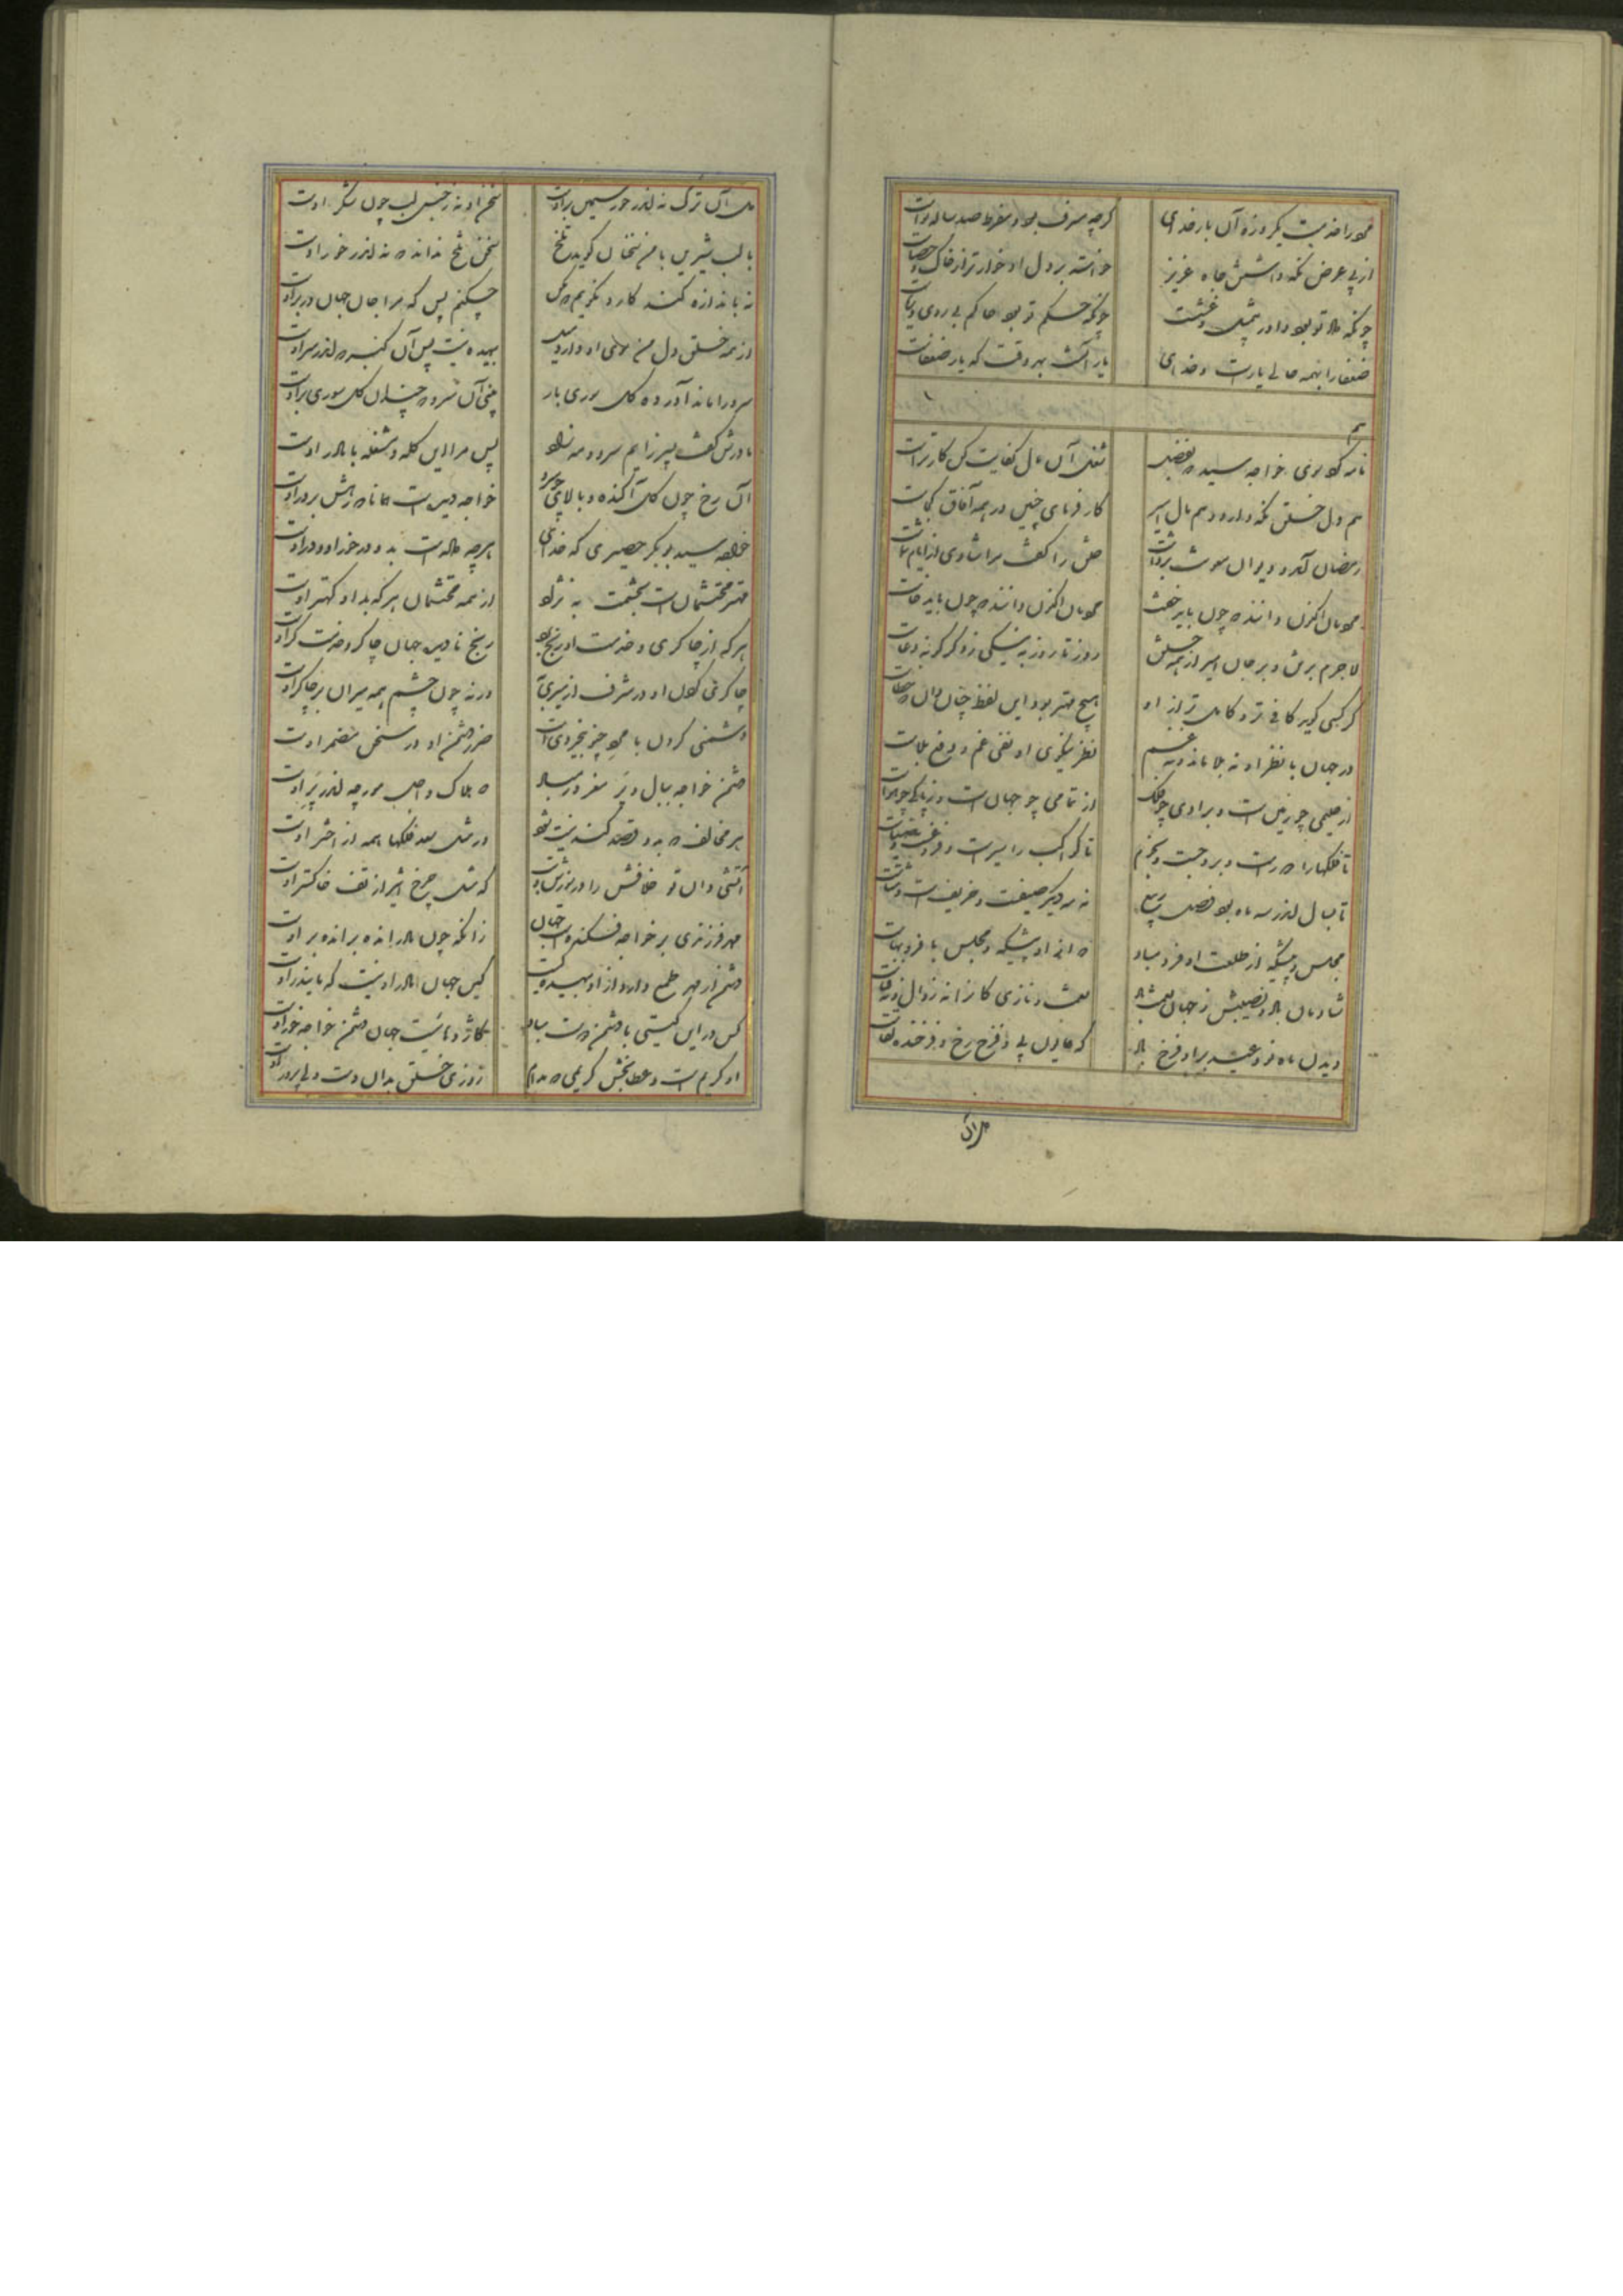 مرد را خدمت یکروزهٔ آن بار خدای
گرچه مسرف بود و مفرط صد ساله نواست
از پی عرض نگه داشتن جاه عزیز
خواسته بر دل او خوارتر از خاک و حصاست
چونکه
چونکه حکم تو بود حاکم بی روی و ریاست
ضعفا را بهمه حالی یارست و خدای
یار آنست بهر وقت که یار ضعفاست
نامه کوبی خواجه سید که بفضل
شغل آن مال کفایت کن
هم دل خلق نگه دارد و هم مال امیر
کار فرمای چنین در همه آفاق کجاست
رمضان آمد و
خلق را گفت مرا شادی از ایام شماست
لاجرم بر تن و بر جان امیر از همه خلق
روز تا روز به نیکی ز دگرگونه دعاست
گر کسی گوید کافی‌تر و کامل‌تر از او
هیچ مهتر بود این لفظ چنان دان که خطاست
در جهان با نظر او نه بلا ماند و نه غم
نظر نیکوی او نفی غم و دفع بلاست
از حلیمی چو زمین است و برادی چو فلک
از تمامی چو جهان است و ز پاکی چو هواست
تا فلکها را دورست و بروجست و نجوم
تا کواکب را سیرست و فروغست و ضیاست
تا بسال اندر سه ماه بود فصل ربیع
نه مه دیگر صیفست و خریفست و شتاست
مجلس و پیشگه از طلعت او فرد مباد
که ازو پیشگه و مجلس با فر و بهاست
شادمان باد و نصیبش ز جهان نعمت و ناز
نعمت و نازی کانرا نه زوال و نه فناست
دیدن ماه نو و عید برو فرخ باد
که همایون پی و فرخ رخ و فرخنده لقاست
دل آن ترک نه اندر خور سیمین بر اوست
سخن او نه ز جنس لب چون شکر اوست
با لب شیرین با من سخنان گوید تلخ
سخن تلخ نداند که نه اندر خور اوست
نه باندازه کند کار و نگویم که مکن
چکنم پس که مرا جان جهان در بر اوست
از همه خلق دل من سوی او دارد میل
بیهده نیست پس آن کبر که اندر سر اوست
سرو را ماند آورده گل سوری بار
بینی آن سرو که چندان گل سوری بر اوست
مادرش گفت پسر زایم سرو و مه زاد
پس مرا این گله و مشغله با مادر اوست
آن رخ چون گل آکنده و بالای چو سرو
خواجه دیدست همانا که رهش بر در اوست
خواجه سید بوبکر حصیری که خدای
هرچه دادست بدو درخور او و در اوست
مهتر محتشمانست بحشمت به نژاد
از همه محتشمان هر که بد او کهتر اوست
هر که از چاکری و خدمت او رنج برد
رنج نادیده جهان چاکر و خدمتگر اوست
چاکری کردن او در شرف از میری به
ورنه چون چشم همه میران بر چاکر اوست
دشمنی کردن با مرد چنو بیخردیست
ضرر دشمن او در سخن مضمر اوست
دشمن خواجه ببال و پر مغرور مباد
که هلاک و اجل مورچه اندر پر اوست
هر مخالف که بدو قصد کند نیست شود
در مثل سعد فلکها همه از اختر اوست
آتشی دان تو خلافش را در سوزش و تف
که مثل چرخ اثیر از تف خاکستر اوست
مهر فرزندی بر خواجه فکندست جهان
زانکه چون مادر انده بر و انده بر اوست
دشمن از مهر طمع دارد ازو بیهده‌ایست
کاین جهان مادر او نیست که مایندر اوست
کس درین گیتی با دشمن دوست مباد
تا جهانست جهان دشمن خواجه خور اوست
او کریم است و عطابخش کریمی که مدام
روزی خلق بدان دست ولی پرور اوست
دل آن